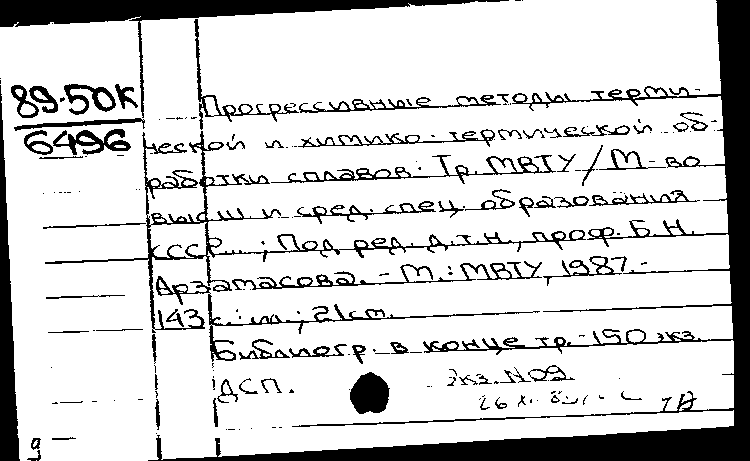 89-50К
6496
Прогрессивные методы терми-
ческой и химико-термической об-
работки сплавов: Тр. МВТУ / М-во
высш и сред. спец. образования
СССР...; Под ред. д.т.н., проф. Б.Н.
Арзамасова. - М.: МВТУ, 1987.-
143 с.: ил.; 21см.
Библиогр. в конце тр. - 150 экз.
ДСП.
Экз. N09.
26 XI
9